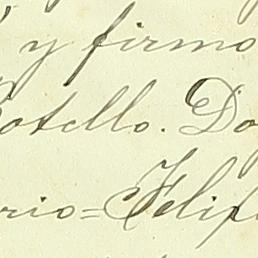 y firmo
Cotello. Do
rio=Felip